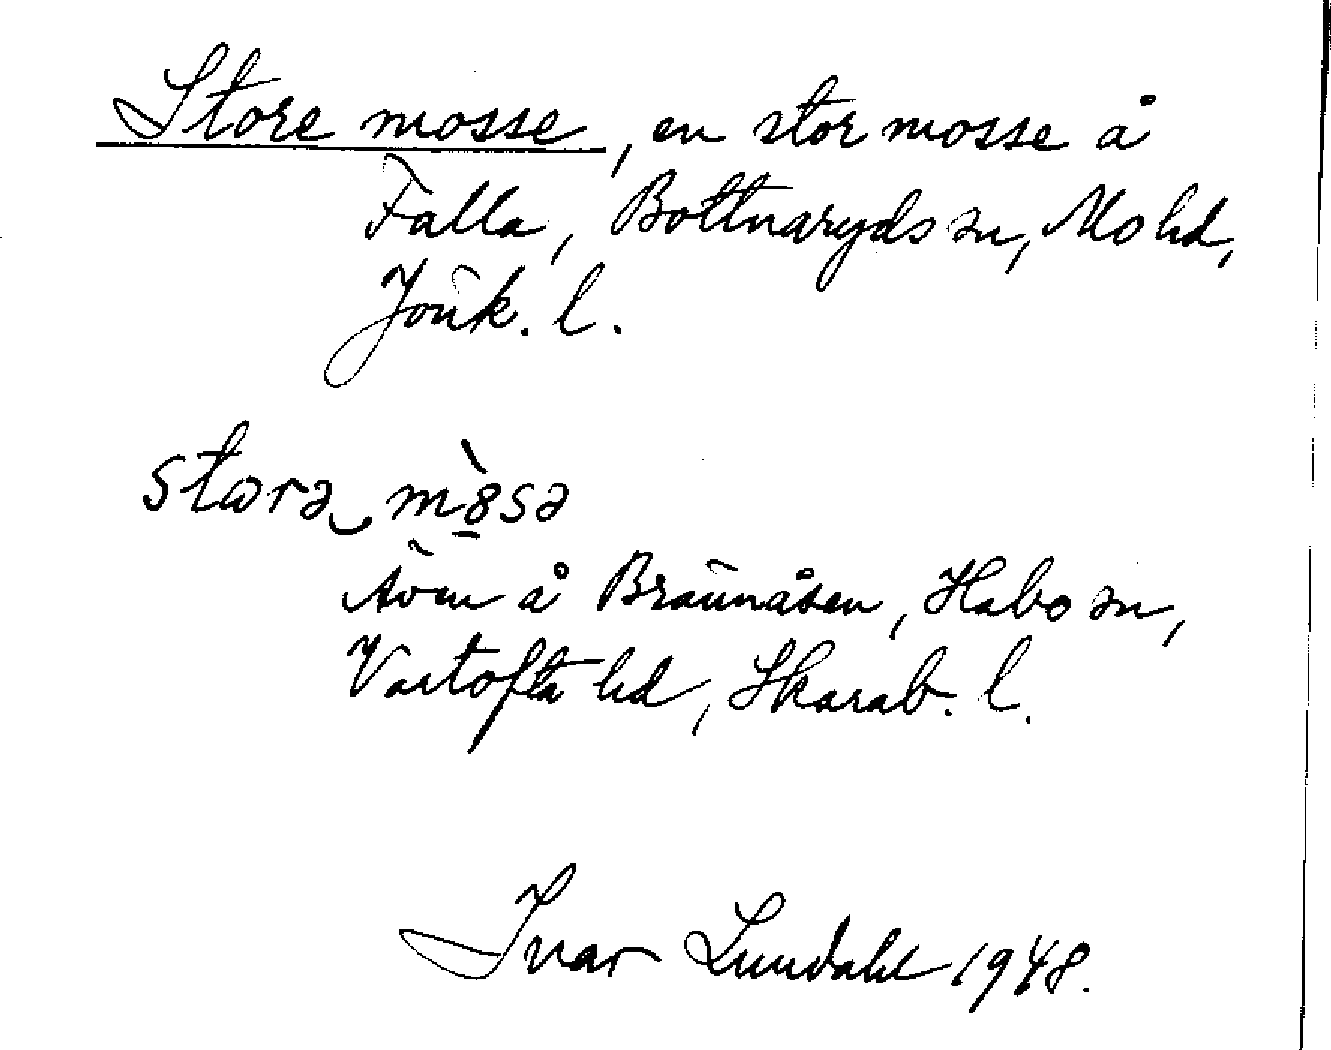 Store mosse, en stor mosse å
Falla, Bottnaryds sn, Mo hd,
Jönk. l.
stωrə‿ m̀8̲sə
Även å Brännåsen, Habo sn,
Vartofta hd, Skarab. l.
Ivar Lundahl 1948.